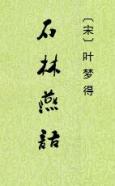 石林燕語
〔宋〕叶梦得